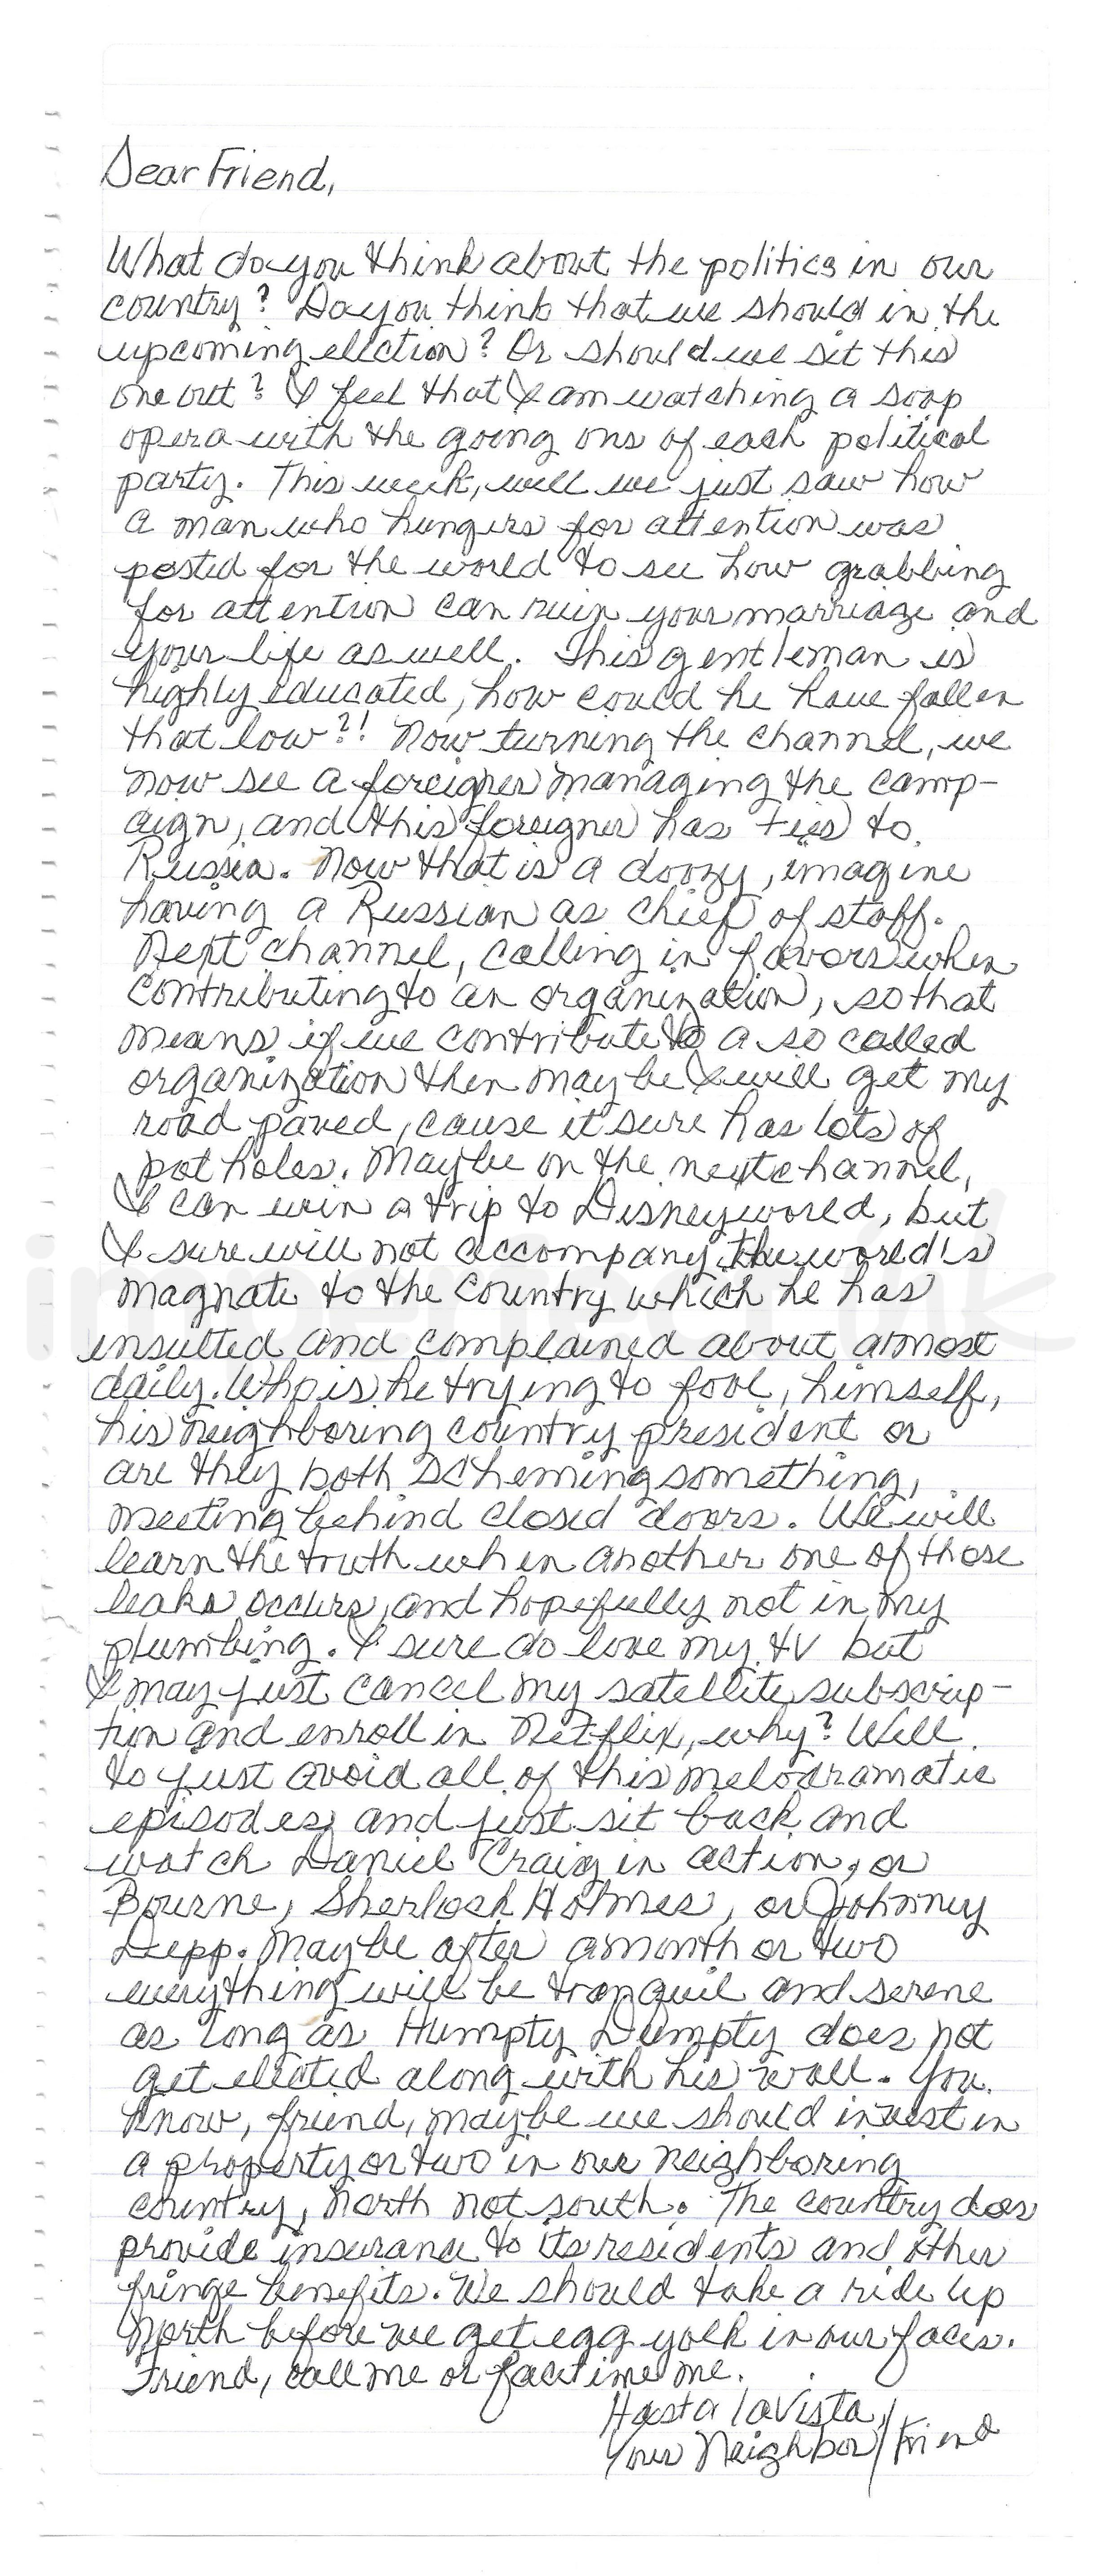 Dear Friend,
What do you think about the politics in our
country? Do you think that we should in the
upcoming election? Or should we sit this
one out? I feel that I am watching a soap
opera with the going ons of each political
party. This week, well we just saw how
a man who hungers for attention was
posted for the world to see how grabbing
for attention can ruin your marriage and
your life as well. This gentleman is
highly educated, how could he have fallen
that low?! Now turning the channel, we
now see a foreigner managing the camp-
aign, and this foreigner has ties to
Russia. Now that is a doozy, imagine
having a Russian as chief of staff.
Next channel, calling in favors when
contributing to an organization, so that
means if we contribute to a so called
organization then maybe I will get my
road paved, cause it sure has lots of
pot holes. Maybe on the next channel,
I can win a trip to Disneyworld, but
I sure will not accompany the world's
magnate to the country which he has
insulted and complained about almost
daily. Who is he trying to fool, himself,
his neighboring country president or
are they both scheming something,
meeting behind closed doors. We will
learn the truth when another one of those
leaks occurs, and hopefully not in my
plumbing. I sure do love my TV but
I may just cancel my satellite subscrip-
tion and enroll in Netflix, why? Well
to just avoid all of this melodramatic
episodes and just sit back and
watch Daniel Craig in action, or
Bourne, Sherlock Holmes, or Johnney
Depp. Maybe after a month or two
everything will be tranquil and serene
as long as Humpty Dumpty does not
get elected along with his wall. You
know, friend, maybe we should invest in
a property or two in our neighboring
country, North not south. The country does
provide insurance to its residents and other
fringe benefits. We should take a ride up
North before we get egg yolk in our faces.
Friend, call me or facetime me.
Hasta la Vista,
Your Neighbor/Friend